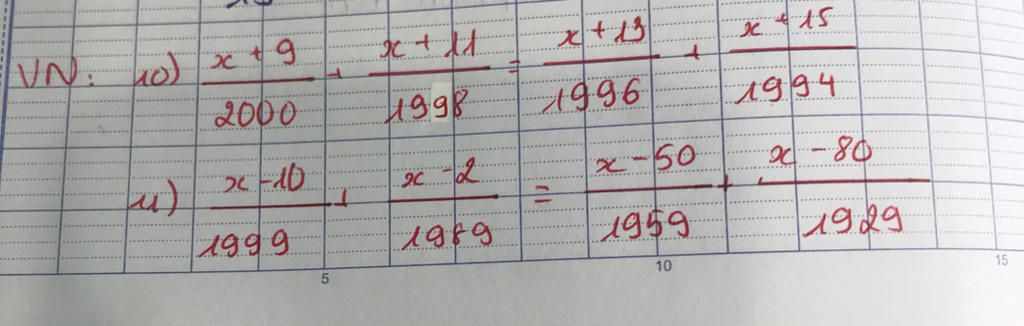 VN: 10) (x + 9)/2000 + (x + 11)/1998 = (x + 13)/1996 + (x + 15)/1994
11) (x - 10)/1999 + (x - 2)/1989 = (x - 50)/1959 + (x - 80)/1929
5 10 15